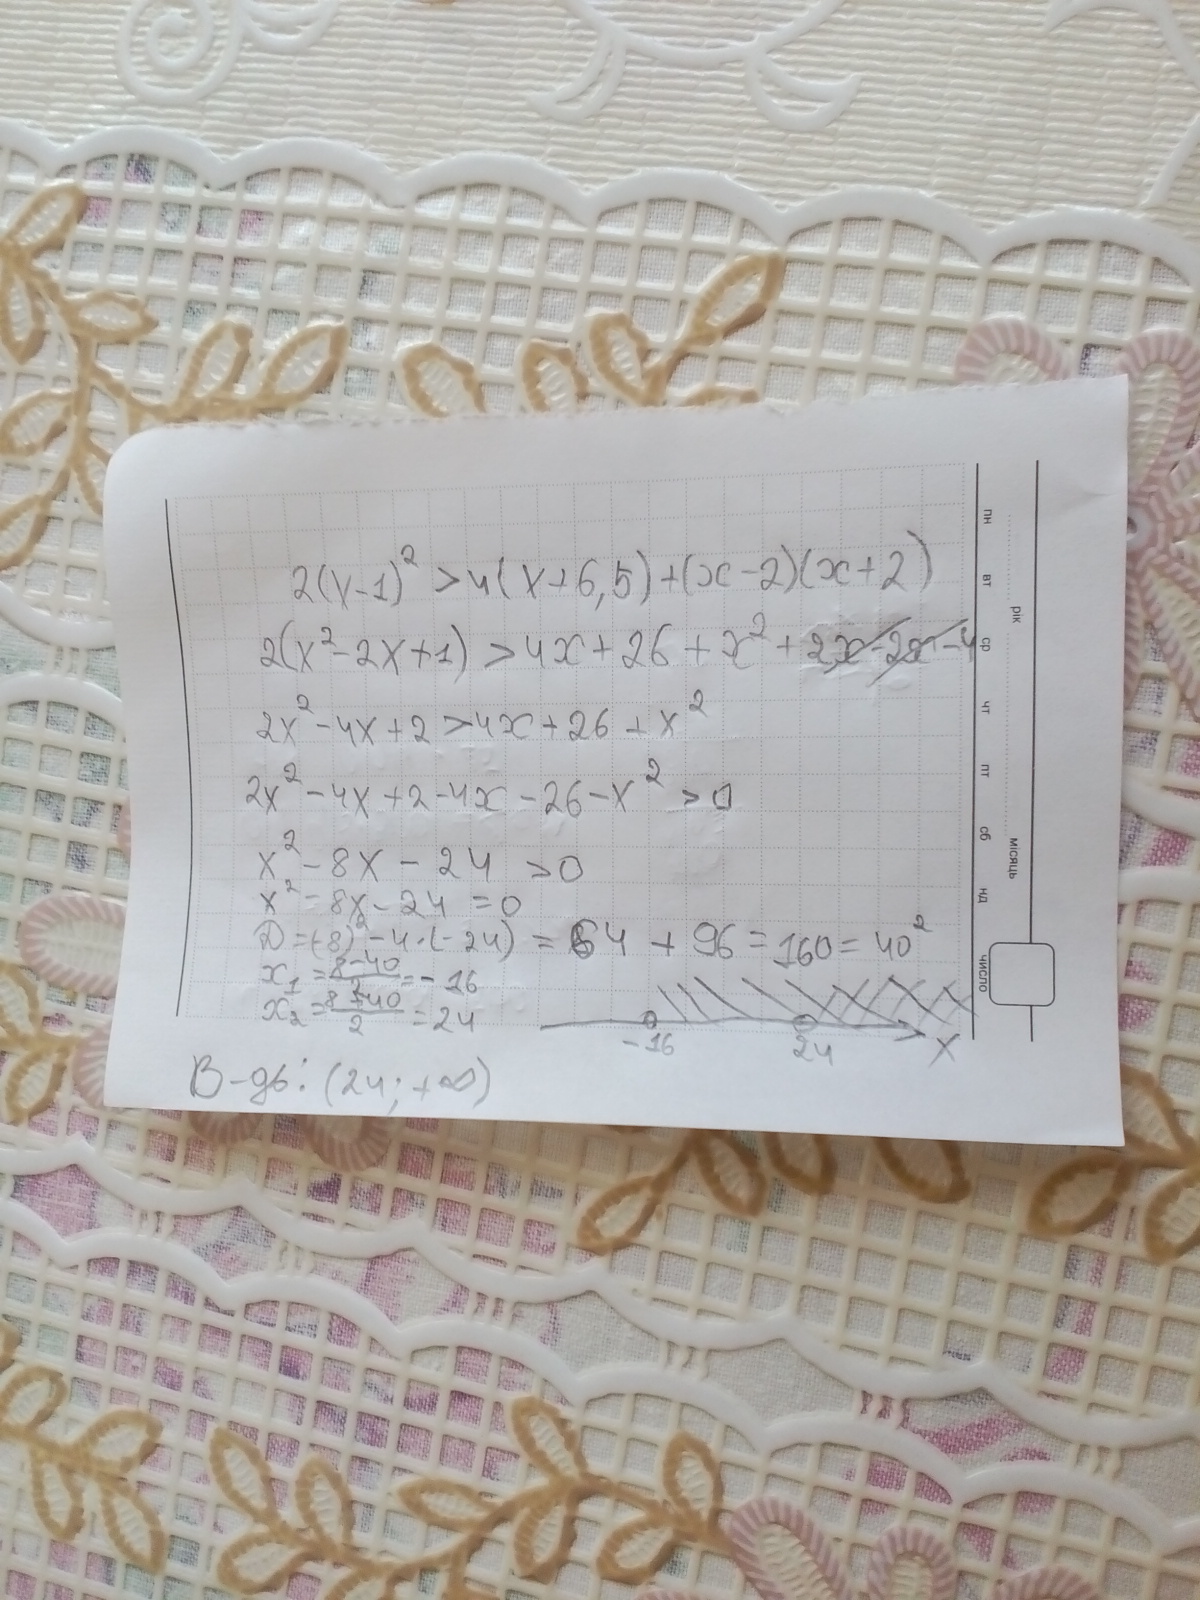 2(x-1)² > 4(x+6,5)+(x-2)(x+2)
2(x²-2x+1) > 4x+26+x²+2x-2x-4
2x²-4x+2 > 4x+26+x²
2x²-4x+2-4x-26-x² > 0
x²-8x-24 > 0
x²-8x-24 = 0
D=(-8)²-4·(-24) = 64+96=160=40²
x₁ = (8-40)/2 = -16
x₂ = (8+40)/2 = 24
-16 24 x
В-дь: (24; +∞)
пн вт ср чт пт сб нд
рік місяць число